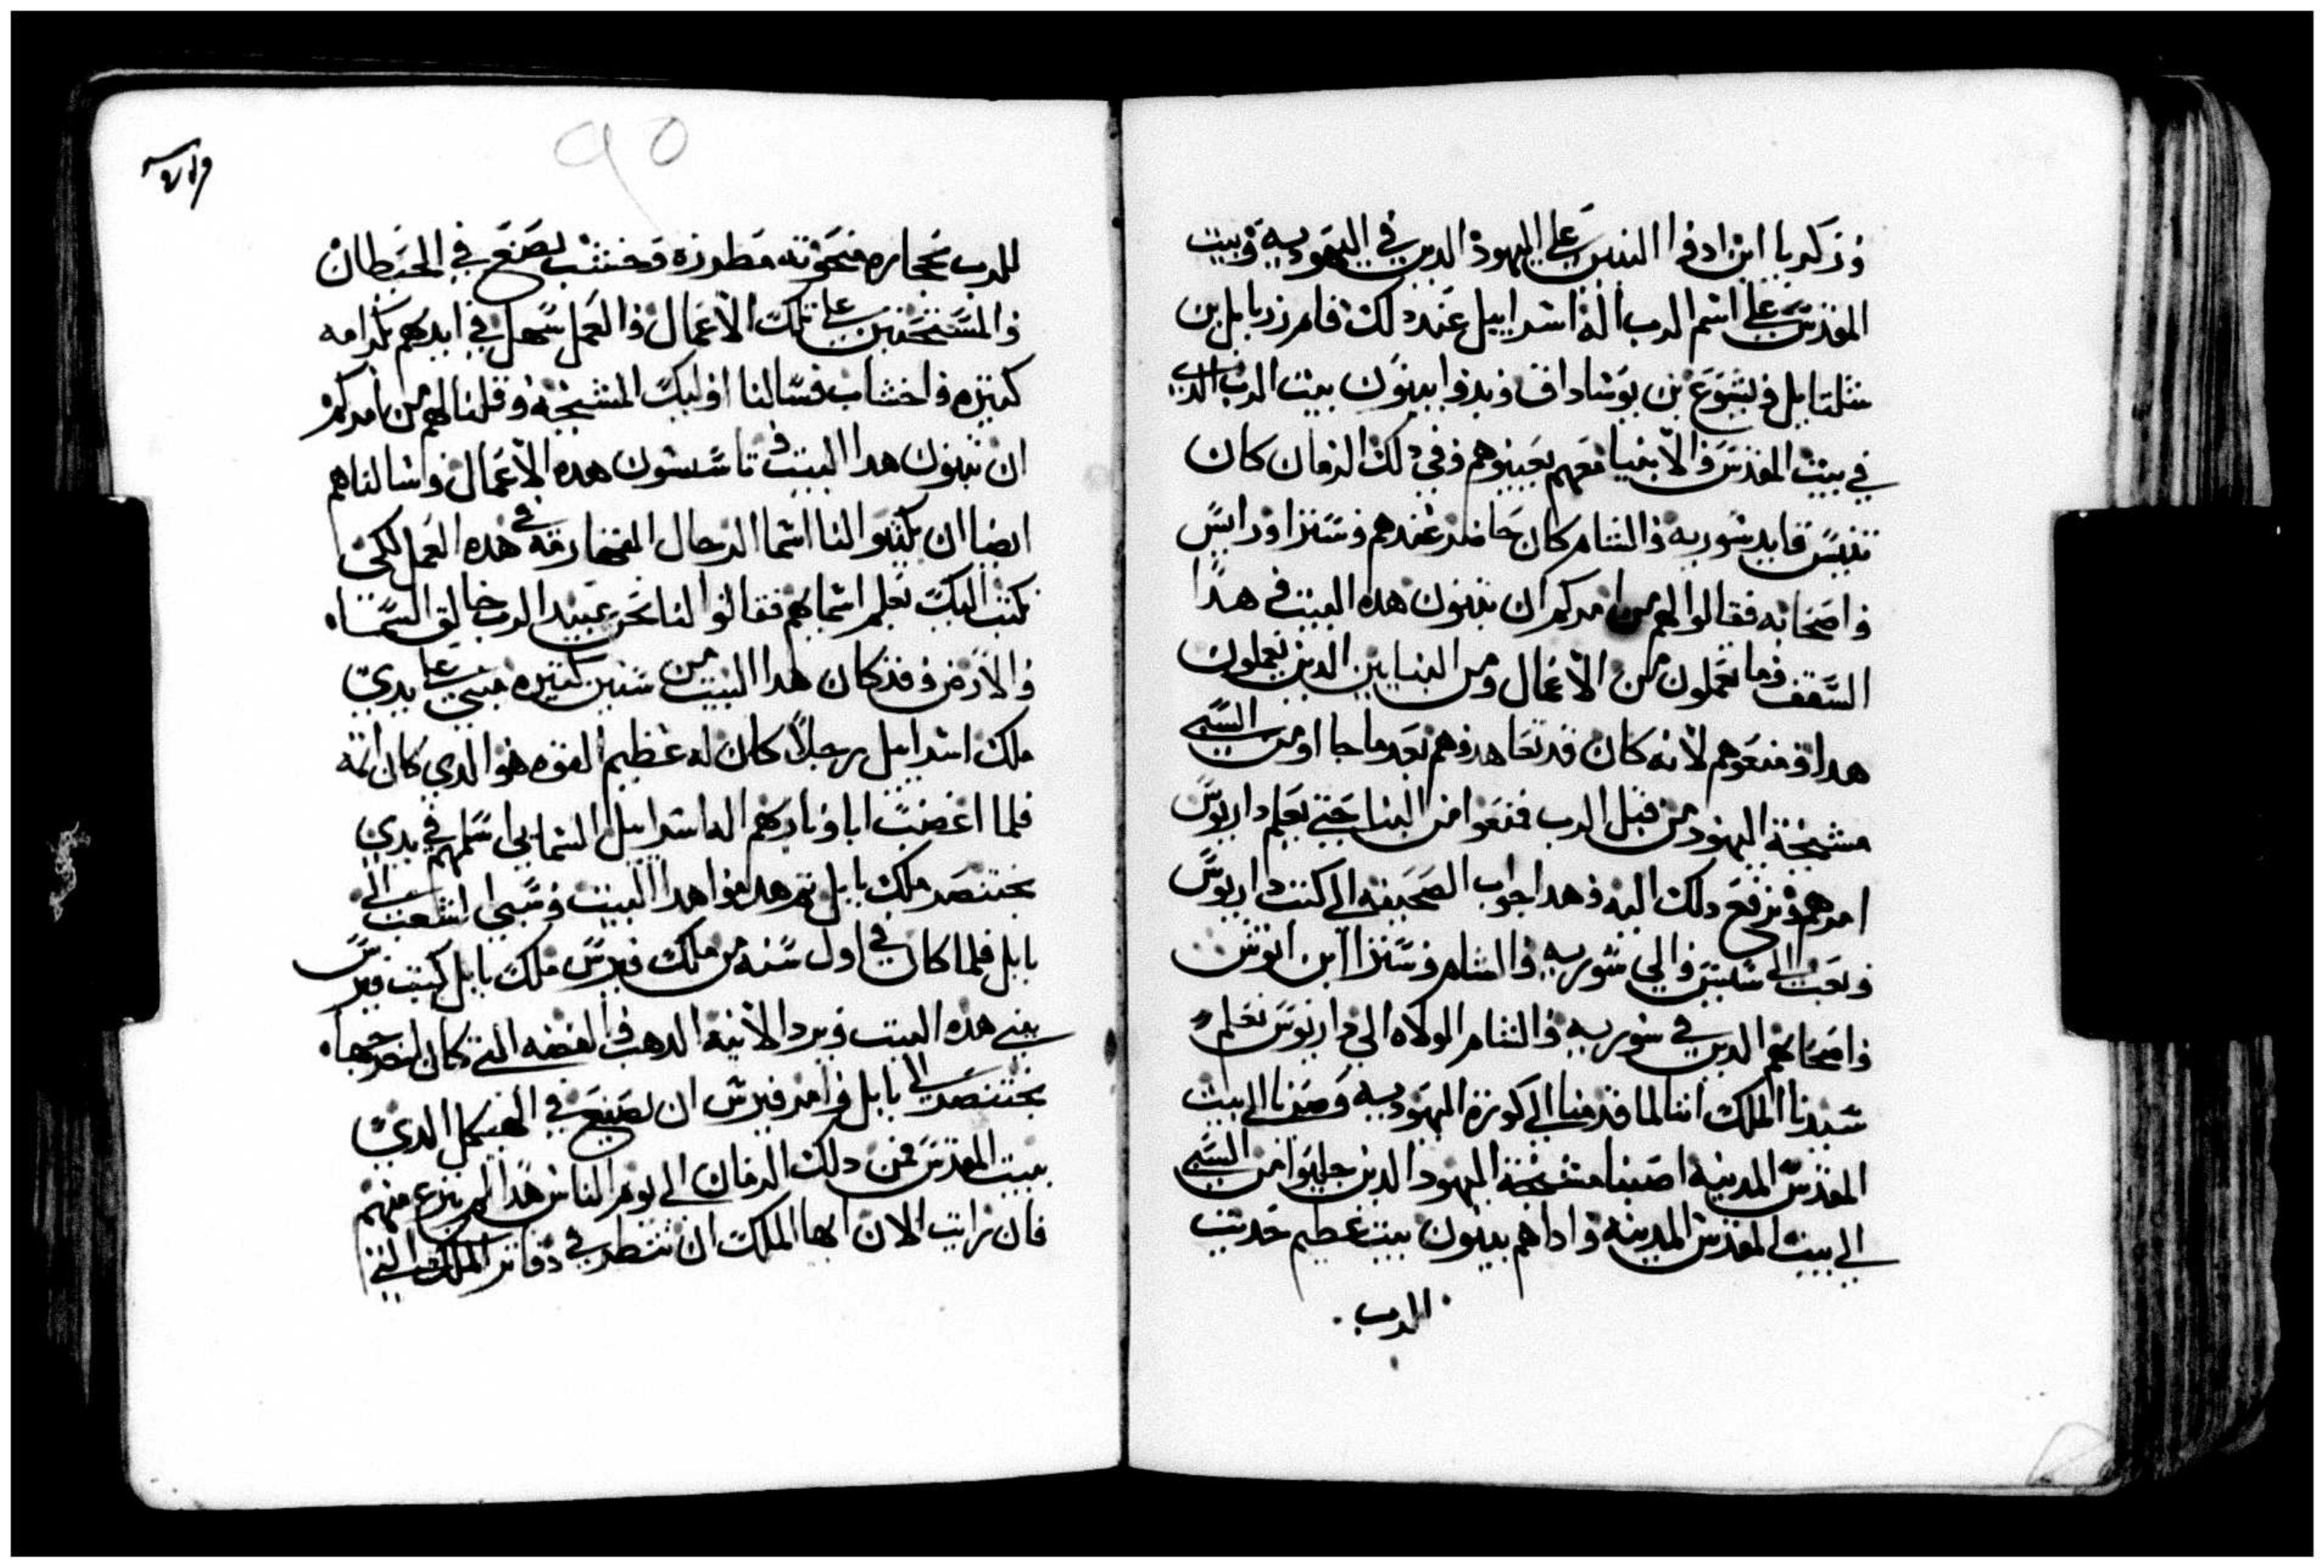 وزكريا ابن ادفوا النبيين على اليهود الدين في اليهوديه وبيت
المقدس على اسم الرب اله اسراييل عند دلك قامر زربابل بن
شلتاييل ويشوع بن يوشاداق وبدوا يبنون بيت الرب الدي
في بيت المقدس والانبيا معهم يعينوهم وفي دلك الزمان كان
قايد سوريه والشام كان حاضر عندهم وستزاوزرايس
واصحابه فقالوا لهم من امركم ان تبنون هده البيت في هدا
السقف وما تعملون من الاعمال ومن البنايين الدين يعملون
هدا ومنعوهم لانه كان قد تعاهدوهم بعدما جا اومن السبي
مشيخة اليهود من قبل الرب فمنعوا من البنا حتى يعلم داريوس
امرهم ونرفع دلك اليه وهدا جواب الصحيفه الى كتب داريوس
وبعث الى سيس والي سوريه والشام وستزا ابن انوش
واصحابهم الدين في سوريه والشام الولاه الى داريوس نعلم
سيدنا الملك اننا لما قدمنا الى كورة اليهوديه وصرنا الى بيت
المقدس المدينه اصبنا مشيخة اليهود الدين جلبوا من السبي
الى بيت المقدس المدينه واداهم يبنون بيت عظيم حديث
الرب
٩٥
للرب بحجاره منحوته مطروزه وخشب يصنع في الحيطان
والمستحتين على تلك الاعمال والعمل سهل في ايديهم بكرامه
كثيره واخشاب فسالنا اوليك المشيخه وقلنا لهم من امركم
ان تبنون هدا البيت وتاسسون هده الاعمال وسالناهم
ايضا ان يكتبوا لنا اسما الرجال في هده العمل لكي
نكتب اليك نعلم اسمايهم فقالوا لنا نحن عبيد الرب خالق السما
والارض وقد كان هدا البيت من سنين كثيره مبني على يدي
ملك اسراييل رجلا كان له عظيم القوه هو الدي كان اتمه
فلما اغضبت اباونا ركهم اله اسراييل السمايي اسلمهم في يدي
بختنصر ملك بابل ثم هدموا هدا البيت وسبي الشعب الى
بابل فلما كان في اول سنه من ملك فيرس ملك بابل كتب فيرس
يبني هده البيت ويرد الانيه الدهب والفضه التي كان اخرجها
بختنصر الى بابل وامر فيرس ان يصنع في الهيكل الدي
ببيت المقدس فمن دلك الزمان الى يومر الناس هدا لم ينزع منهم
فان رايت الان ايها الملك ان تنظر في دفاتر الملك التي